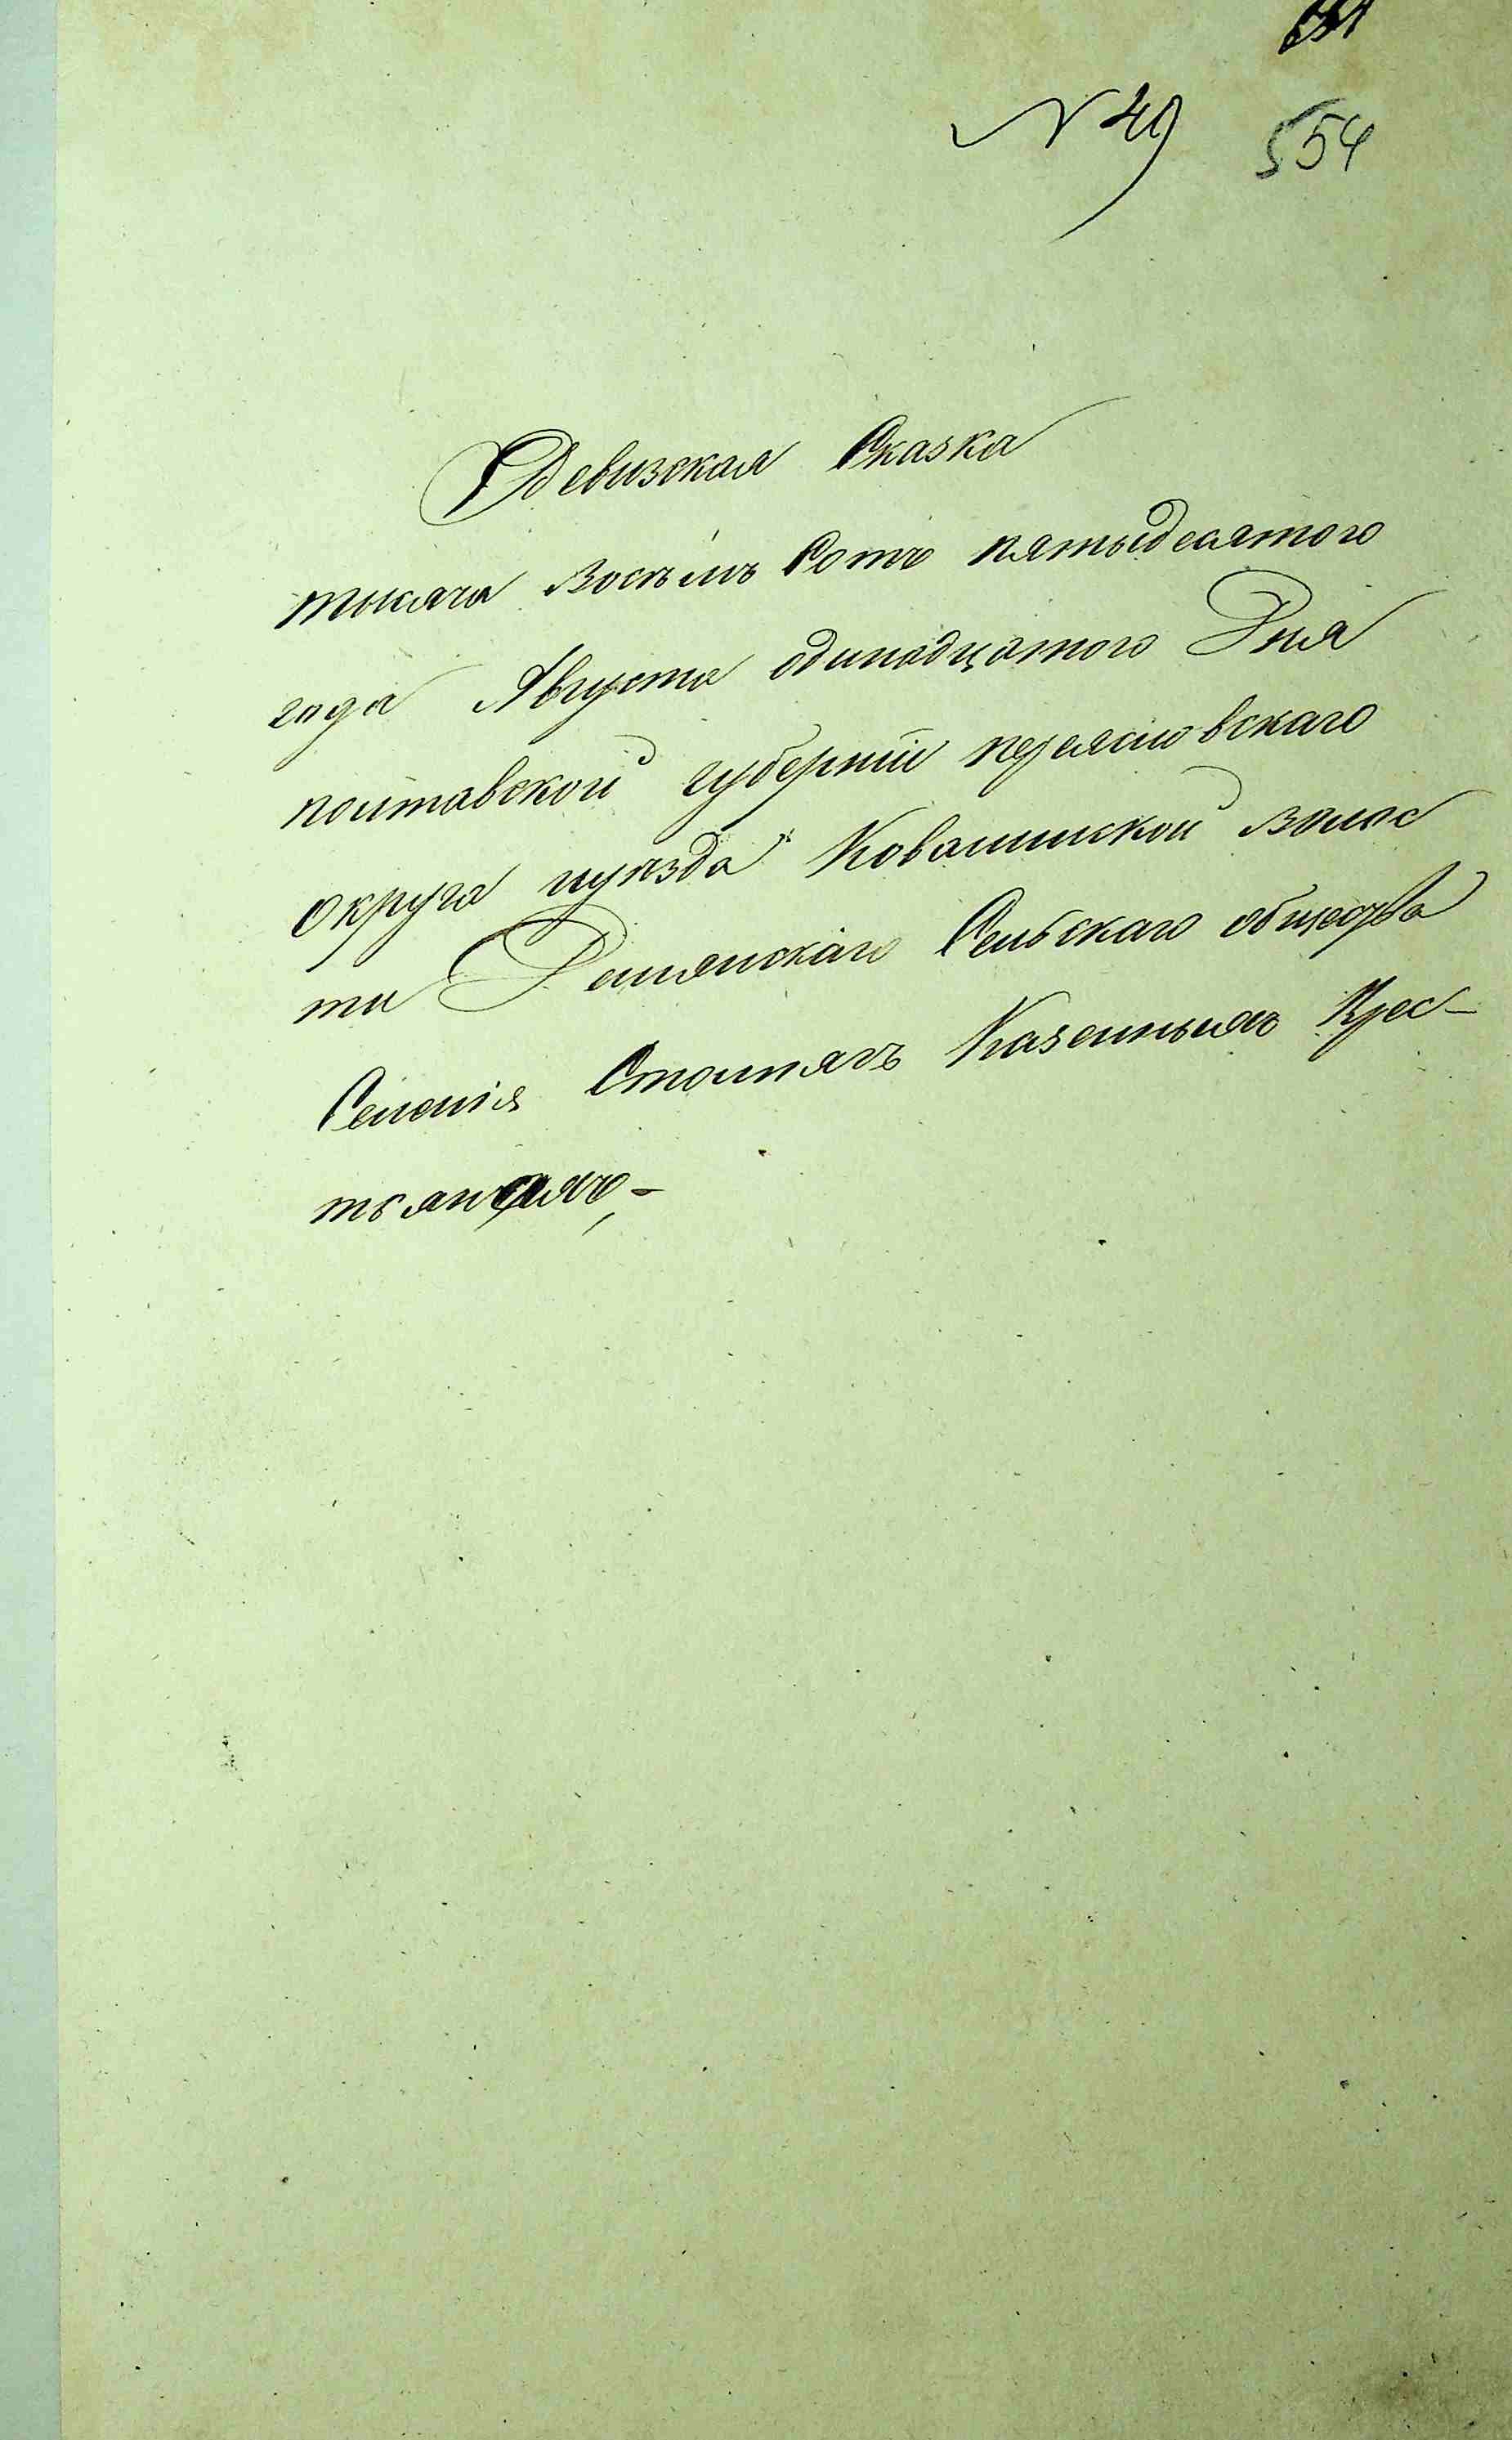 N 49 554
Ревизская Сказка
тысяча восѣмъ Сотъ пятьидесятого
года Августа одинадцатого Дня
полтавской губерніи переяславскаго
округа иуѣзда Ковалинской волос
ти Демянскаго Сельскаго общества
Селенія Столпягъ Казеннымъ Крес-
тьянамъ,-